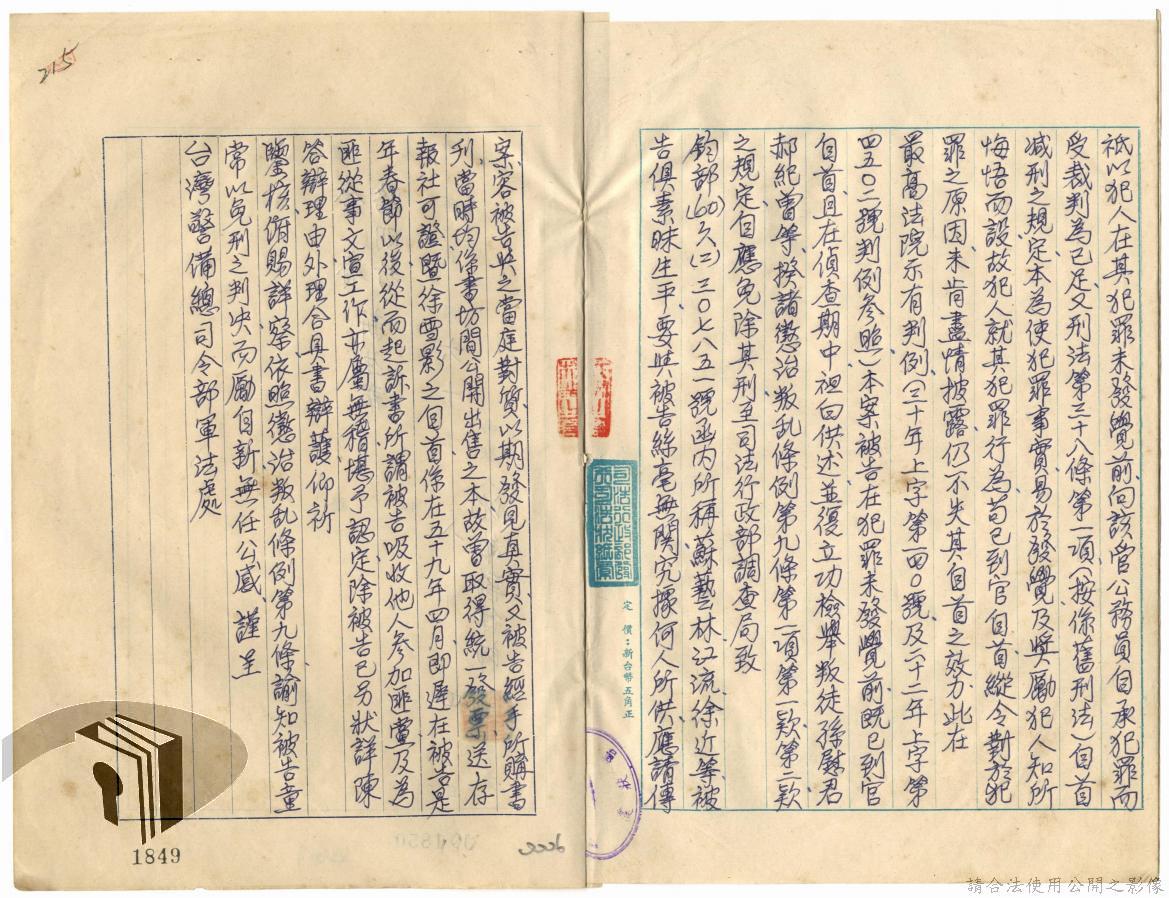 祇以犯人在其犯罪未發覺前向該管公務員自承犯罪而
受裁判為已足又刑法第三十八條第一項（按係舊刑法）自首
減刑之規定本為使犯罪事實易於發覺及獎勵犯人知所
悔悟而設故犯人就其犯罪行為苟已到官自首縱令對於犯
罪之原因未肯盡情披露仍不失其自首之效力此在
最高法院示有判例（二十年上字第一四〇號及二十二年上字第
四五〇二號判例參照）本案被告在犯罪未發覺前既已到官
自首且在偵查期中坦白供述並復立功檢舉叛徒孫慰君
郝紀曾等揆諸懲治叛乱條例第九條第一項第一款第二款
之規定自應免除其刑至司法行政部調查局致
鈞部(60)久(二)三〇七八五一號函內所稱蘇藝林江流徐近等被
告俱素昧生平要與被告絲毫無關究據何人所供應請傳
案容被告與之當庭對質以期發見真實又被告經手所購書
刊當時均係書坊間公開出售之本故曾取得統一發票送存
報社可證暨徐雪影之自首係在五十九年四月即遲在被告是
年春節以後從而起訴書所謂被告吸收他人參加匪黨及為
匪從事文宣工作亦屬無稽堪予認定除被告已另狀詳陳
答辯理由外理合具書辯護仰祈
鑒核俯賜詳察依照懲治叛乱條例第九條諭知被告童
常以免刑之判决而勵自新無任公感 謹呈
台灣警備總司令部軍法處
定價：新台幣五角正
215
1849
請合法使用公開之影像